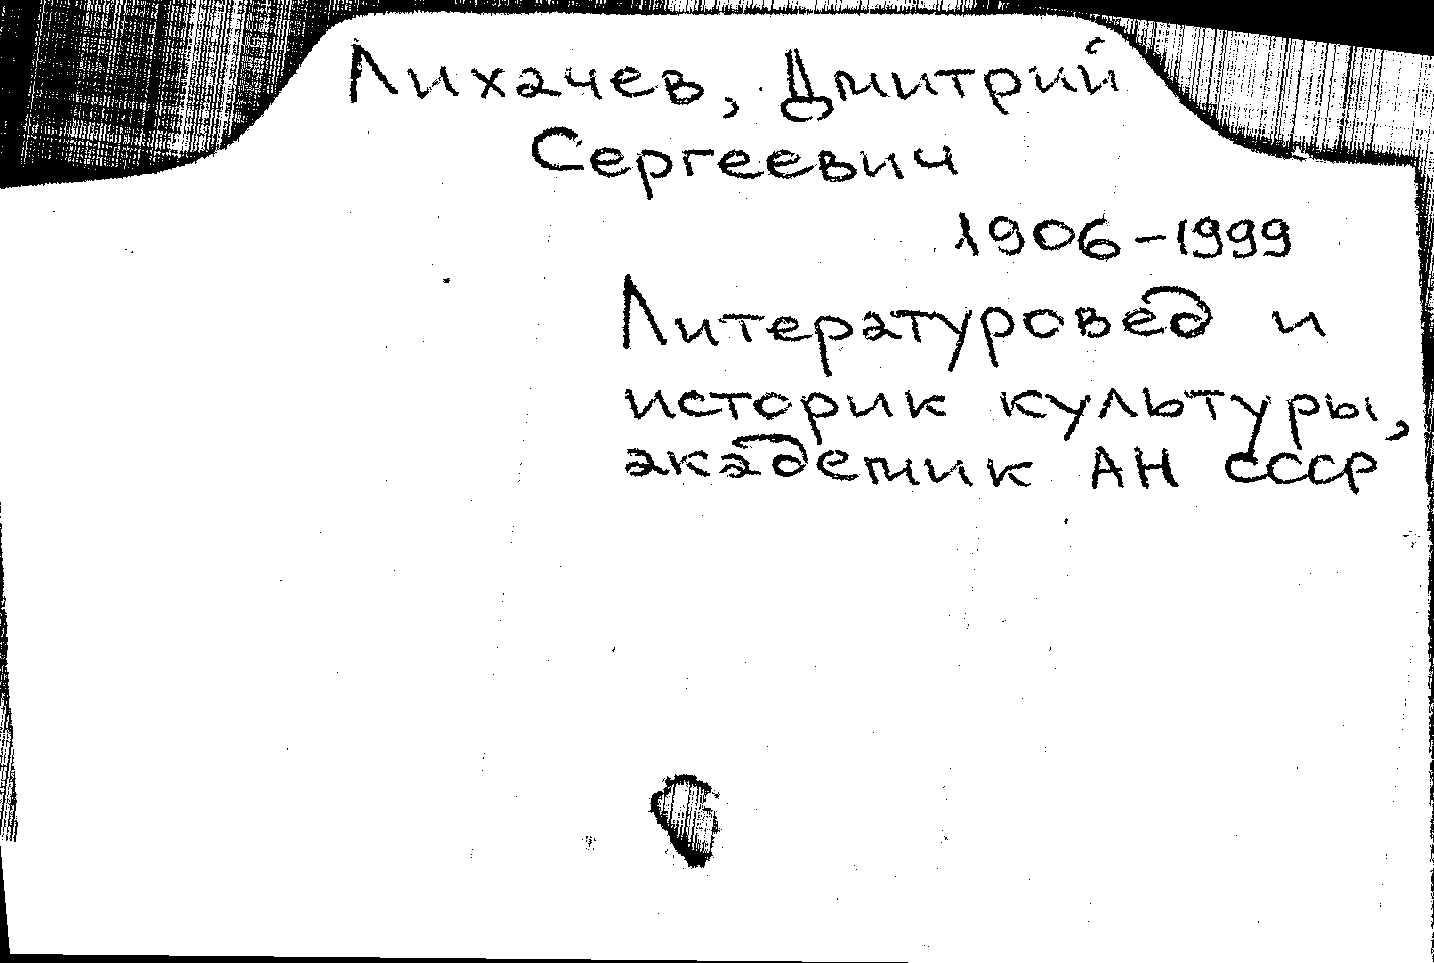 Лихачев, Дмитрий
Сергеевич
1906-1999
Литературовед и
историк культуры,
академик АН СССР